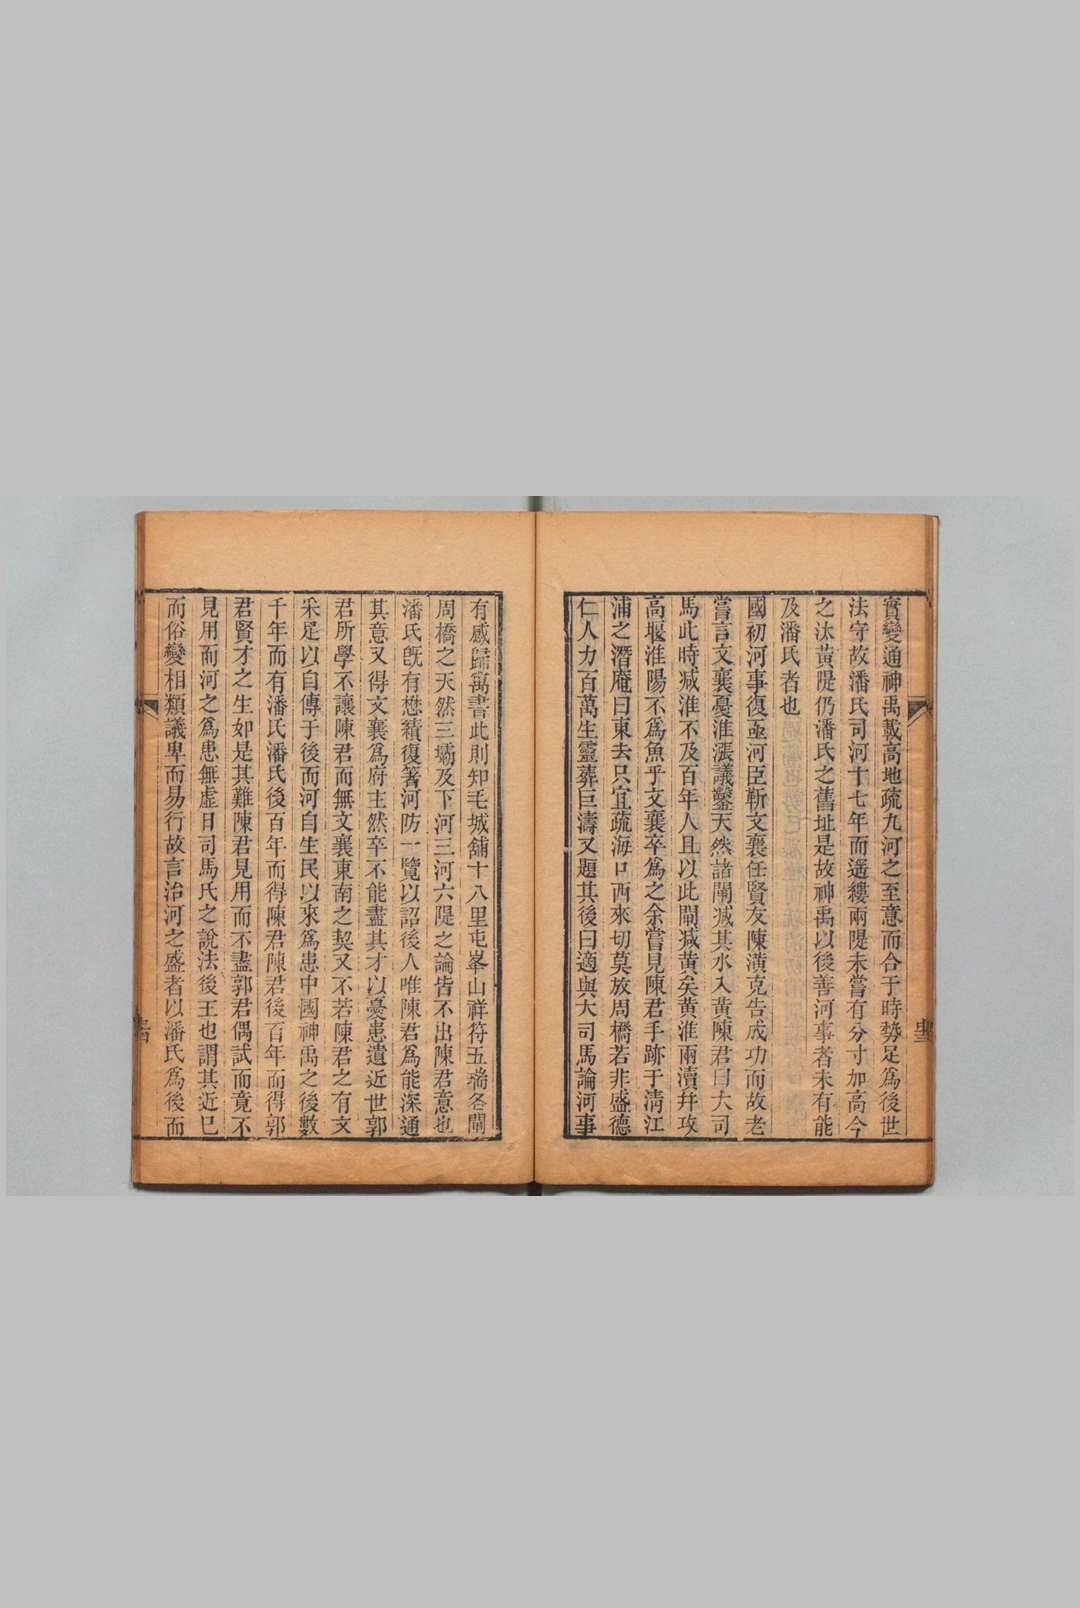 實變通神禹載高地疏九河之至意而合于時勢足為後世
法守故潘氏司河十七年而遙縷兩隄未嘗有分寸加高今
之汰黃隄仍潘氏之舊址是故神禹以後善河事者未有能
及潘氏者也
國初河事復亟河臣靳文襄任賢友陳潢克告成功而故老
嘗言文襄憂淮漲議鑿天然諸閘減其水入黃陳君曰大司
馬此時減淮不及百年人且以此閘減黃矣黃淮兩瀆幷攻
高堰淮陽不為魚乎文襄卒為之余嘗見陳君手跡于清江
浦之潛庵曰東去只宜疏海口西來切莫放周橋若非盛德
仁人力百萬生靈葬巨濤又題其後曰適與大司馬論河事
有感歸寓書此則知毛城舖十八里屯峯山祥符五瑞各閘
周橋之天然三壩及下河三河六隄之論皆不出陳君意也
潘氏旣有懋績復著河防一覽以詔後人唯陳君為能深通
其意又得文襄為府主然卒不能盡其才以憂患遺近世郭
君所學不讓陳君而無文襄東南之契又不若陳君之有文
采足以自傳于後而河自生民以來為患中國神禹之後數
千年而有潘氏潘氏後百年而得陳君陳君後百年而得郭
君賢才之生如是其難陳君見用而不盡郭君偶試而竟不
見用而河之為患無虛日司馬氏之說法後王也謂其近已
而俗變相類議卑而易行故言治河之盛者以潘氏為後而